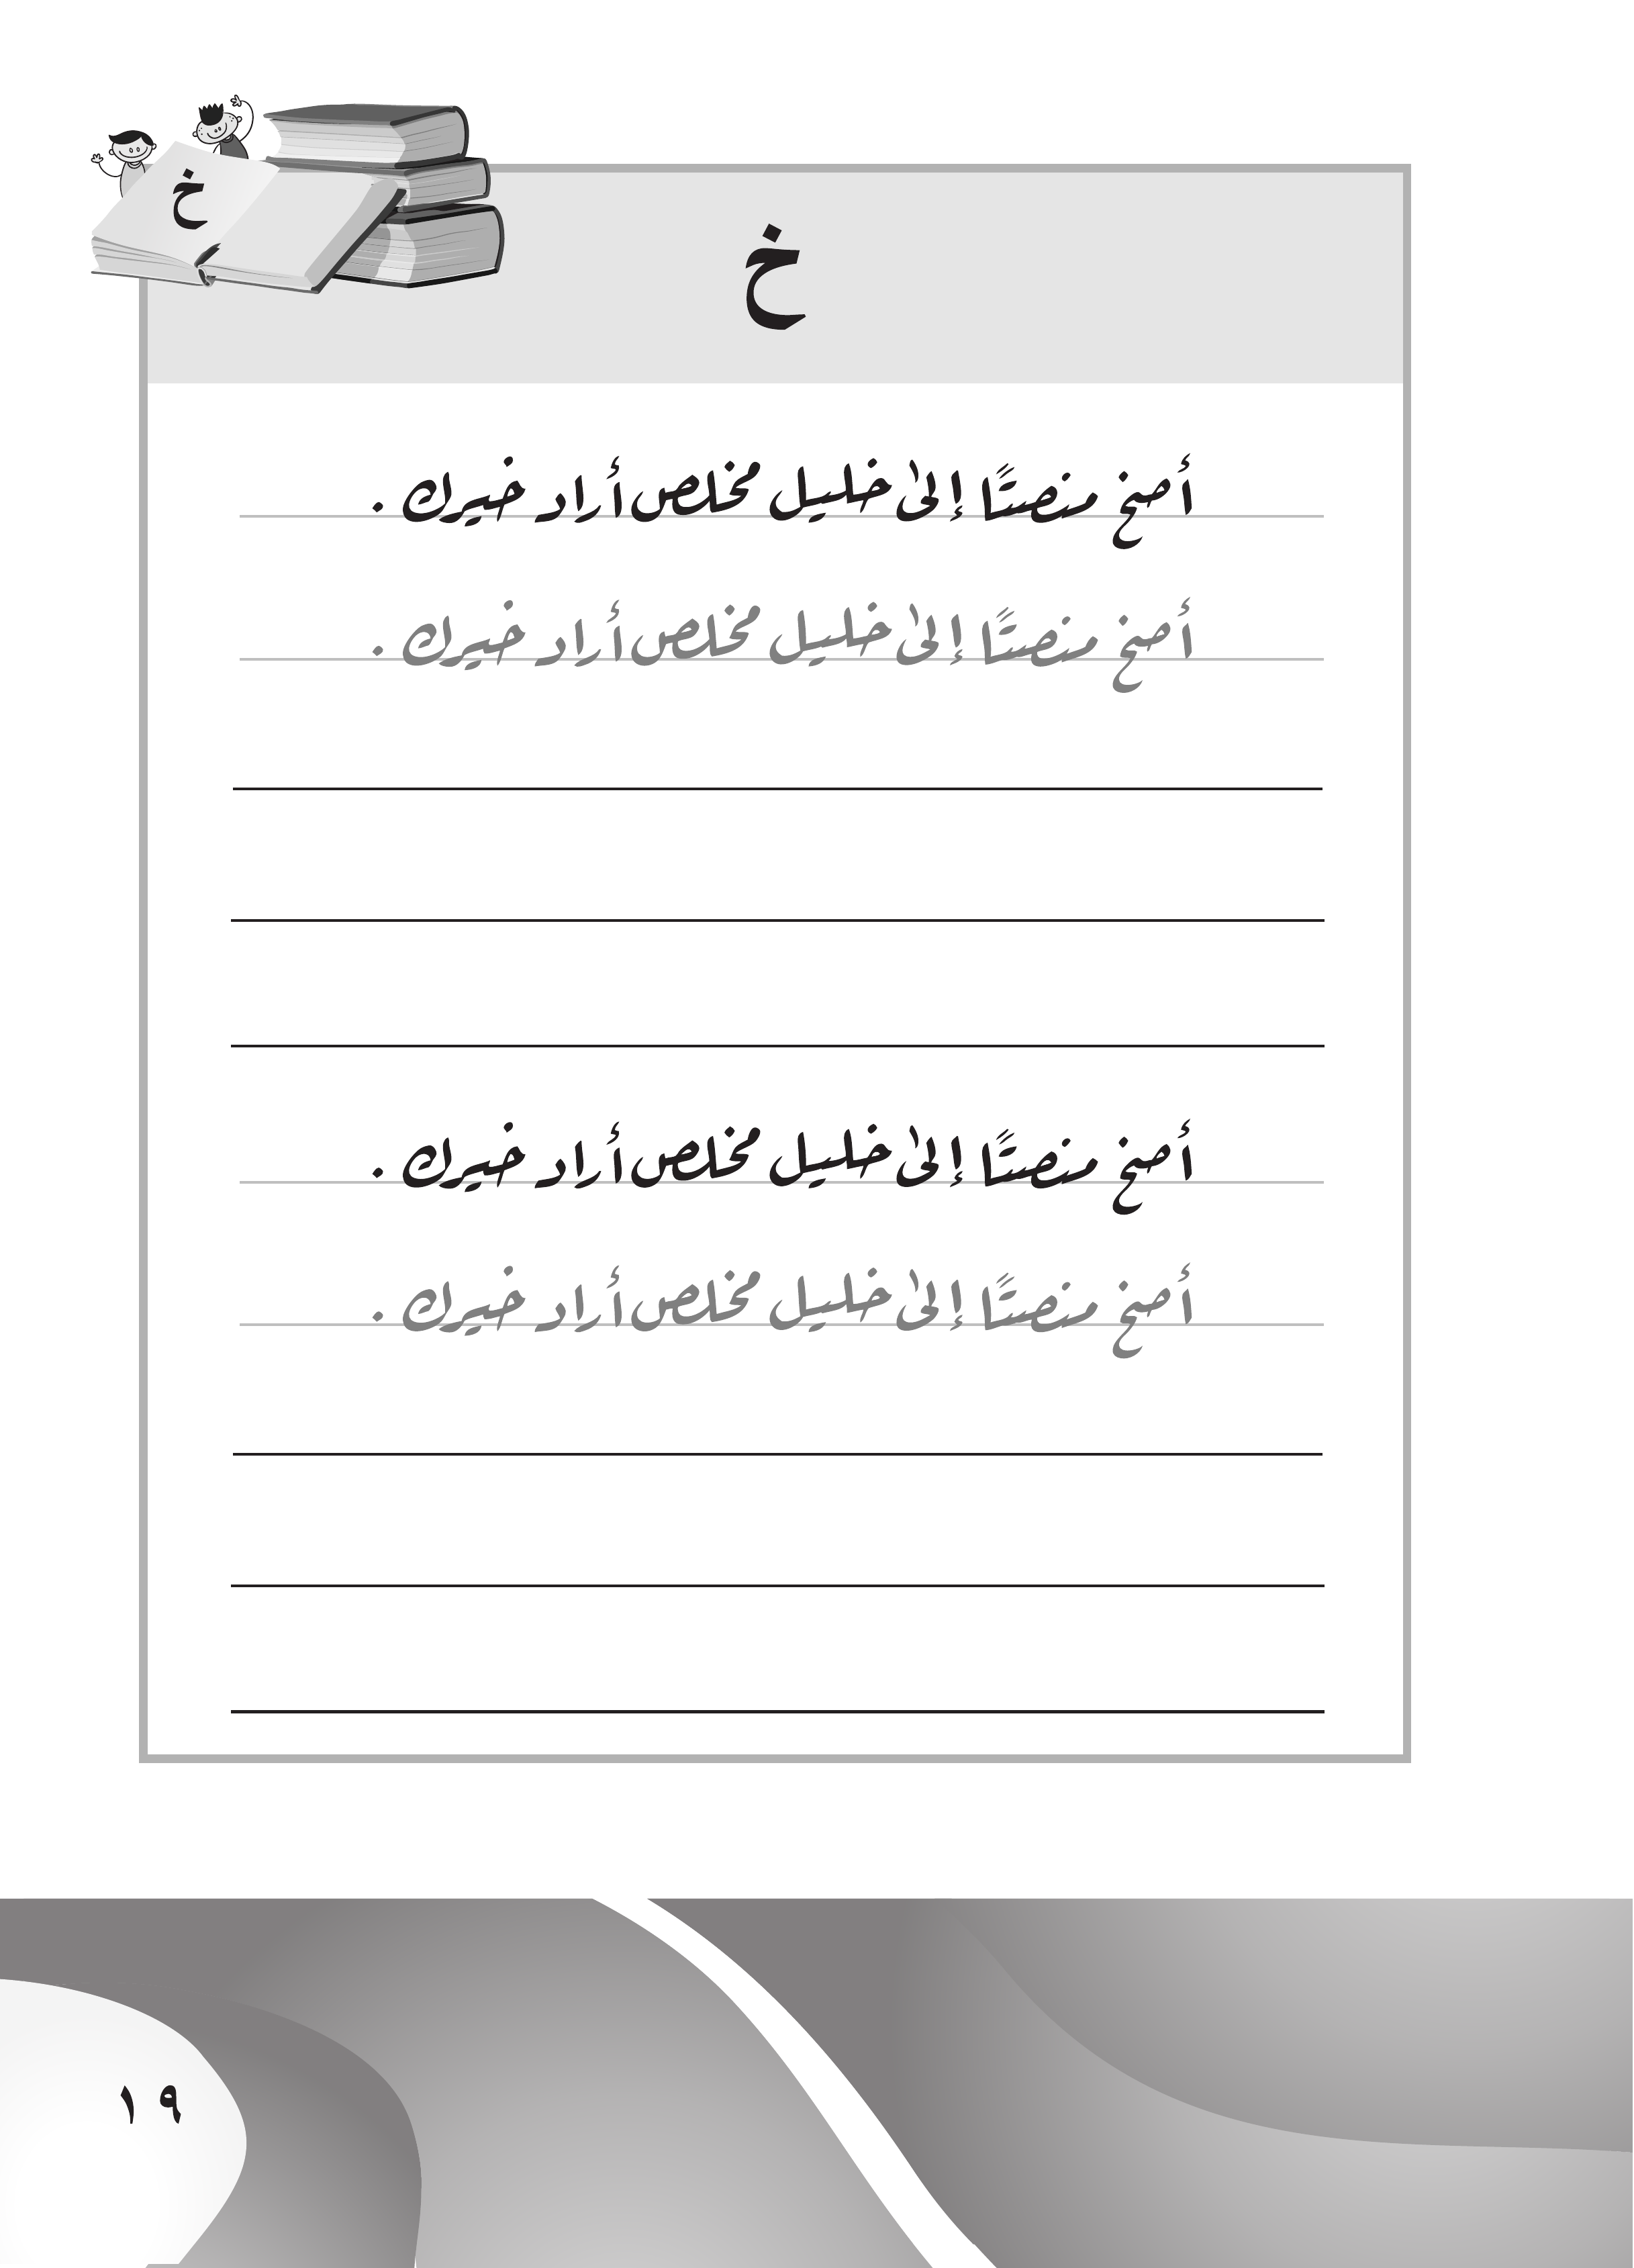 خ
خ
أصخ منصتًا إلىٰ خليل مخلص أراد خيرك .
أصخ منصتًا إلىٰ خليل مخلص أراد خيرك .
أصخ منصتًا إلىٰ خليل مخلص أراد خيرك .
أصخ منصتًا إلىٰ خليل مخلص أراد خيرك .
١٩